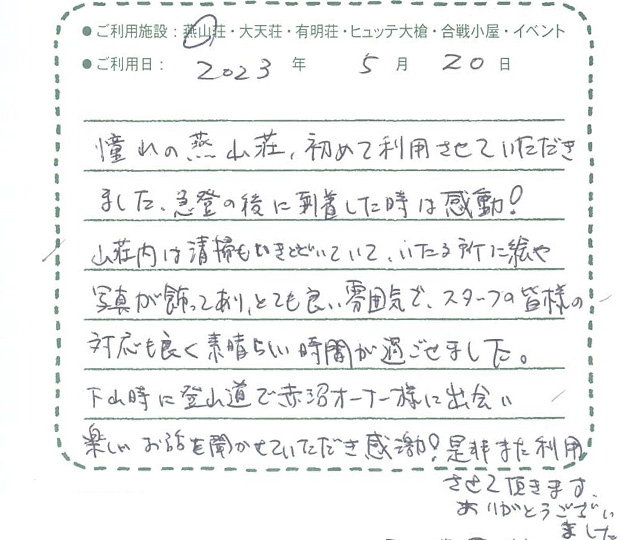 ●ご利用施設：燕山荘・大天荘・有明荘・ヒュッテ大槍・合戦小屋・イベント
●ご利用日： 2023 年 5 月 20 日
憧れの燕山荘、初めて利用させていただき
ました、急登の後に到着した時は感動！
山荘内は清掃もいきとどいていて、いたる所に絵や
写真が飾ってあり、とても良い雰囲気で、スタッフの皆様の
対応も良く素晴らしい時間が過ごせました。
下山時に登山道で赤沼オーナー様に出会い
楽しいお話を聞かせていただき感激！是非また利用
させて頂きます、
ありがとうござい
ました